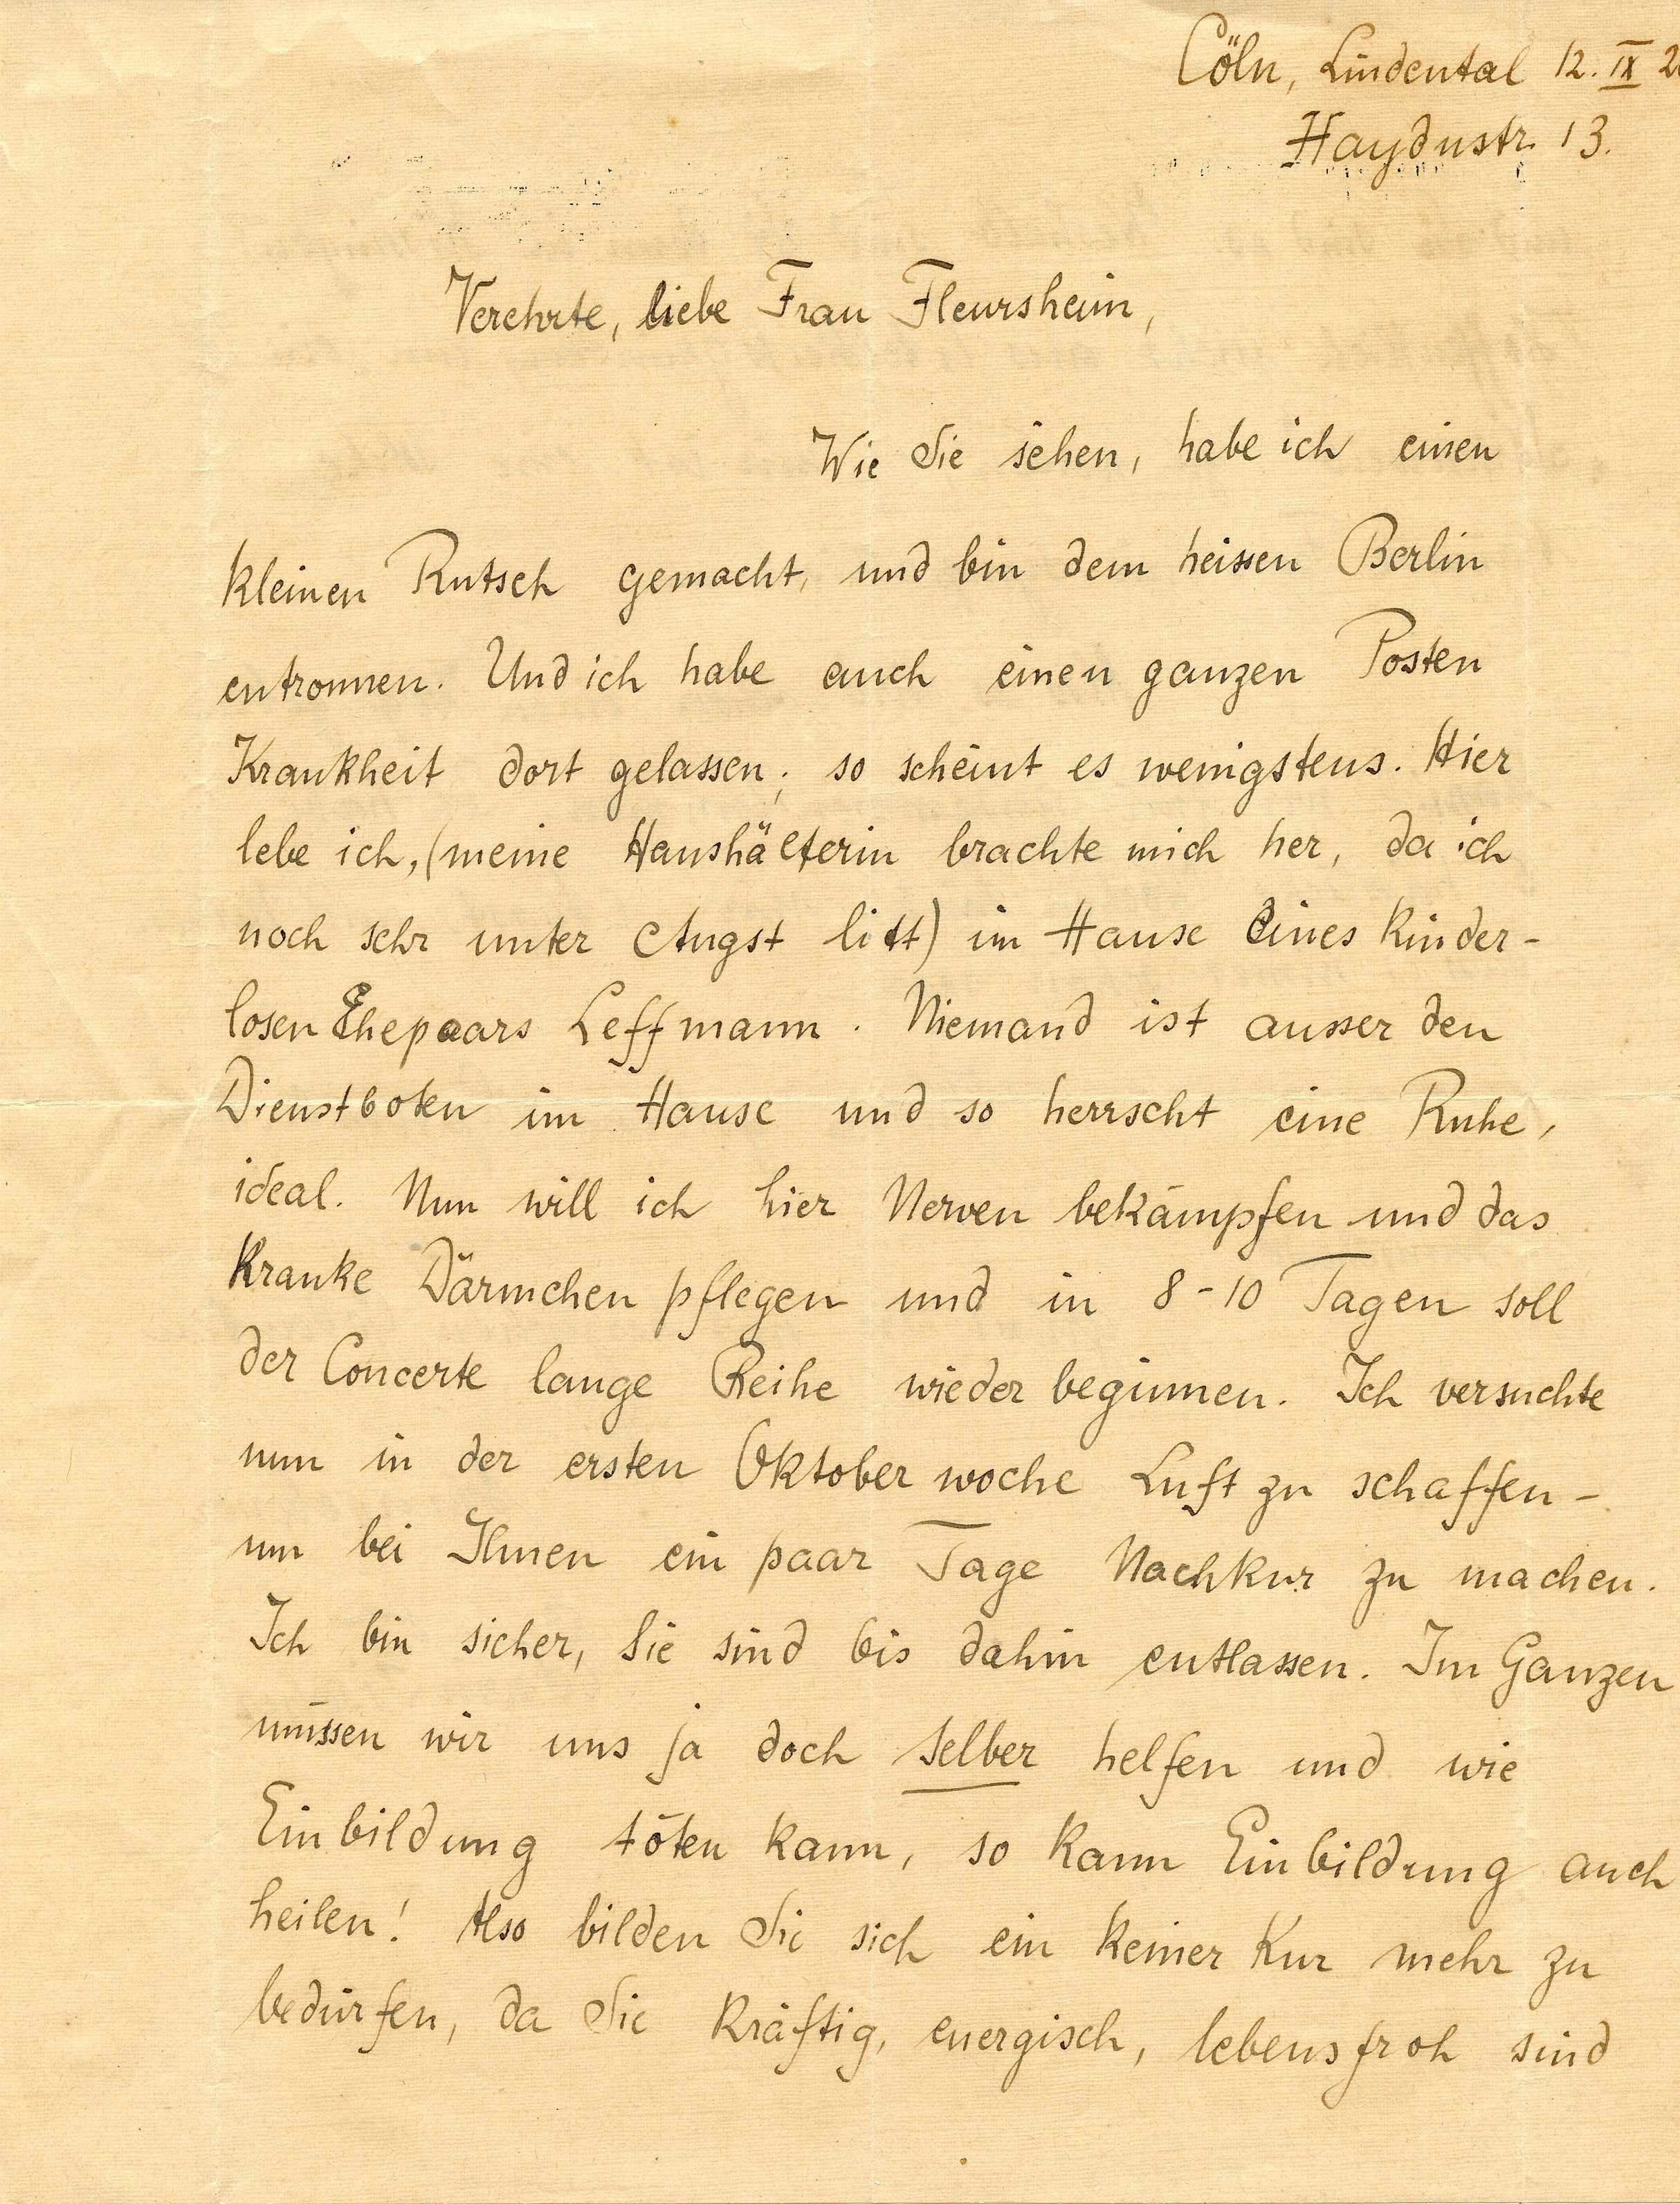 Cöln, Lindental 12. IX 2
Haydnstr. 13.
Verehrte, liebe Frau Fleursheim,
Wie Sie sehen, habe ich einen
kleinen Rutsch gemacht, und bin dem heissen Berlin
entronnen. Und ich habe auch einen ganzen Posten
Krankheit dort gelassen; so scheint es wenigstens. Hier
lebe ich, (meine Haushälterin brachte mich her, da ich
noch sehr unter Angst litt) im Hause eines kinder-
losen Ehepaars Leffmann. Niemand ist ausser den
Dienstboten im Hause und so herrscht eine Ruhe,
ideal. Nun will ich hier Nerven bekämpfen und das
kranke Därmchen pflegen und in 8-10 Tagen soll
der Concerte lange Reihe wieder beginnen. Ich versuchte
nun in der ersten Oktoberwoche Luft zu schaffen -
um bei Ihnen ein paar Tage Nachkur zu machen.
Ich bin sicher, Sie sind bis dahin entlassen. Im Ganzen
müssen wir uns ja doch selber helfen und wie
Einbildung töten kann, so kann Einbildung auch
heilen! Also bilden Sie sich ein keiner Kur mehr zu
bedürfen, da Sie kräftig, energisch, lebensfroh sind